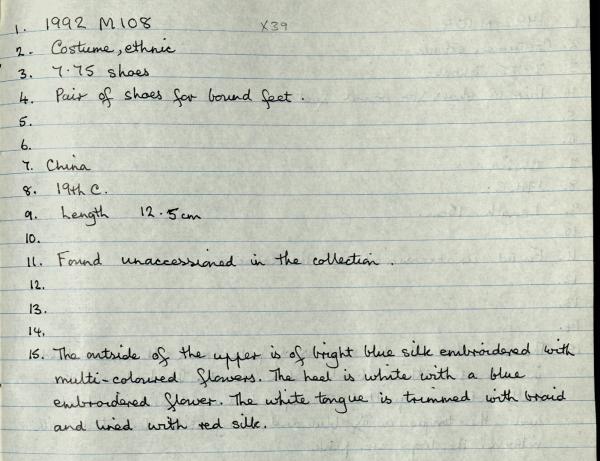 1. 1992 M108 X39
2. Costume, ethnic
3. 7.75 shoes
4. Pair of shoes for bound feet.
5.
6.
7. China
8. 19th C.
9. Length 12.5cm
10.
11. Found unaccessioned in the collection.
12.
13.
14.
15. The outside of the upper is of bright blue silk embroidered with
multi-coloured flowers. The heel is white with a blue
embroidered flower. The white tongue is trimmed with braid
and lined with red silk.